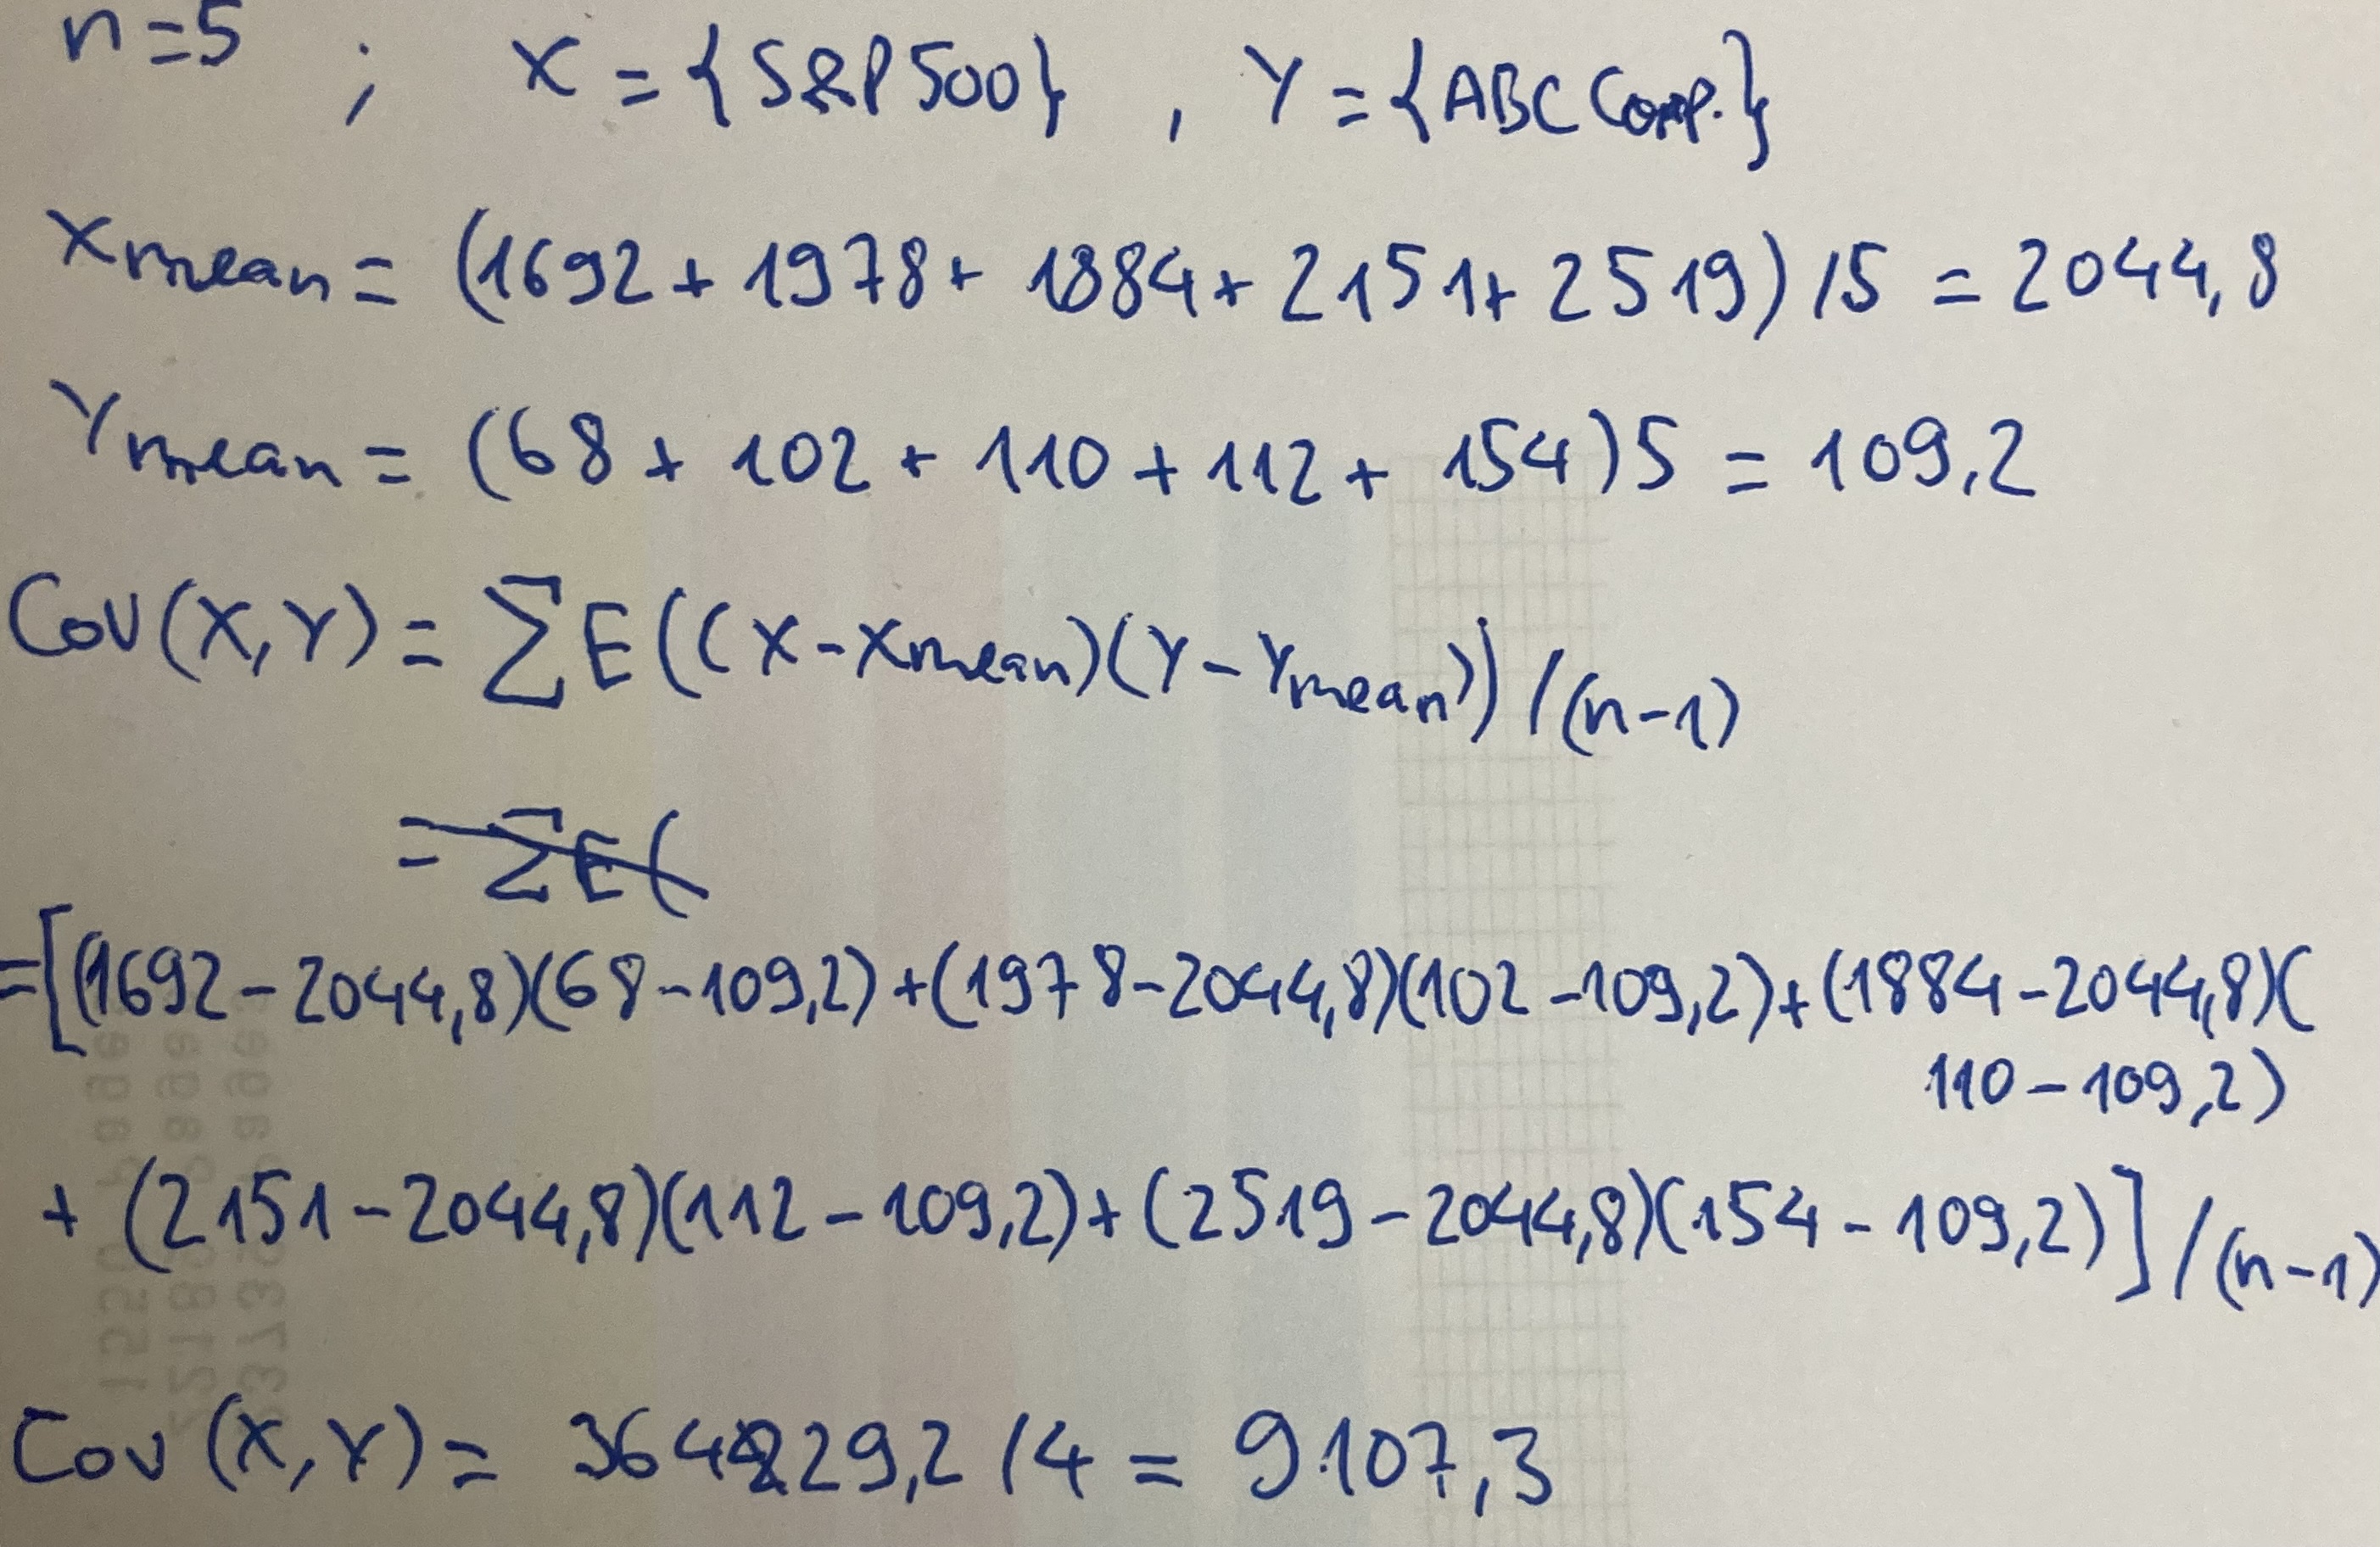 n=5 ; X = {S&P500} , Y = {ABC Corp.}
Xmean = (1692 + 1978 + 1884 + 2151 + 2519) /5 = 2044,8
Ymean = (68 + 102 + 110 + 112 + 154)5 = 109,2
Cov(X,Y) = ΣE((X-Xmean)(Y-Ymean)) /(n-1)
= ΣE(
=[(1692-2044,8)(68-109,2)+(1978-2044,8)(102-109,2)+(1884-2044,8)(
110-109,2)
+ (2151-2044,8)(112-109,2)+(2519-2044,8)(154-109,2)] /(n-1)
Cov(X,Y) = 29,2 /4 = 9107,3